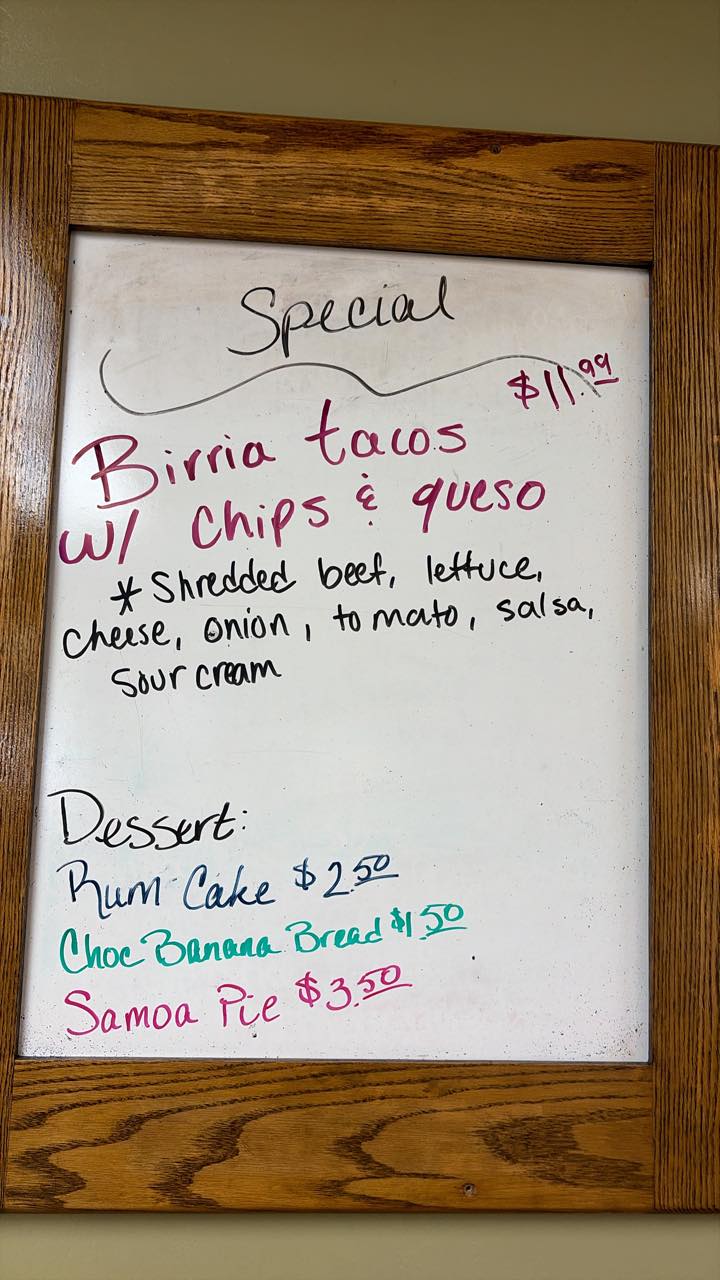 Special
$11.99
Birria tacos
w/ chips & queso
* Shredded beef, lettuce,
cheese, onion, tomato, salsa,
sour cream
Dessert:
Rum Cake $2.50
Choc Banana Bread $1.50
Samoa Pie $3.50